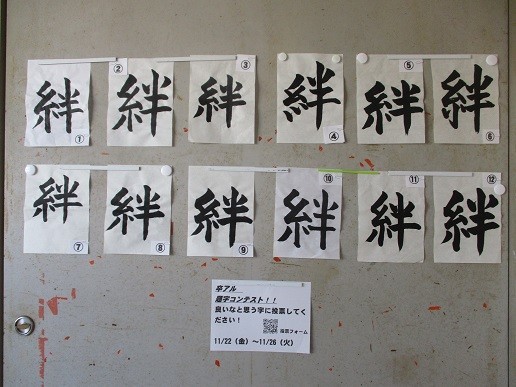 絆 ①
絆 ②
絆 ③
絆 ④
絆 ⑤
絆 ⑥
絆 ⑦
絆 ⑧
絆 ⑨
絆 ⑩
絆 ⑪
絆 ⑫
卒アル
題字コンテスト！！
良いなと思う字に投票してく
ださい！
投票フォーム
11/22（金）～11/26（火）